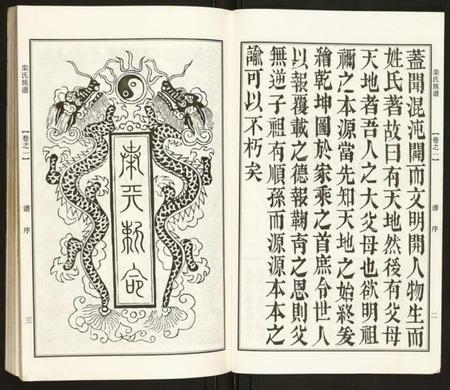 栾氏族谱
【卷之一】
谱序
二
蓋聞混沌闢而文明開人物生而
姓氏著故曰有天地然後有父母
天地者吾人之大父母也欲明祖
禰之本源當先知天地之始終爰
繪乾坤圖於家乘之首庶令世人
以報覆載之德報鞠育之恩則父
無逆子祖有順孫而源源本本之
諭可以不朽矣
奉天敕命
栾氏族谱
【卷之一】
谱序
三